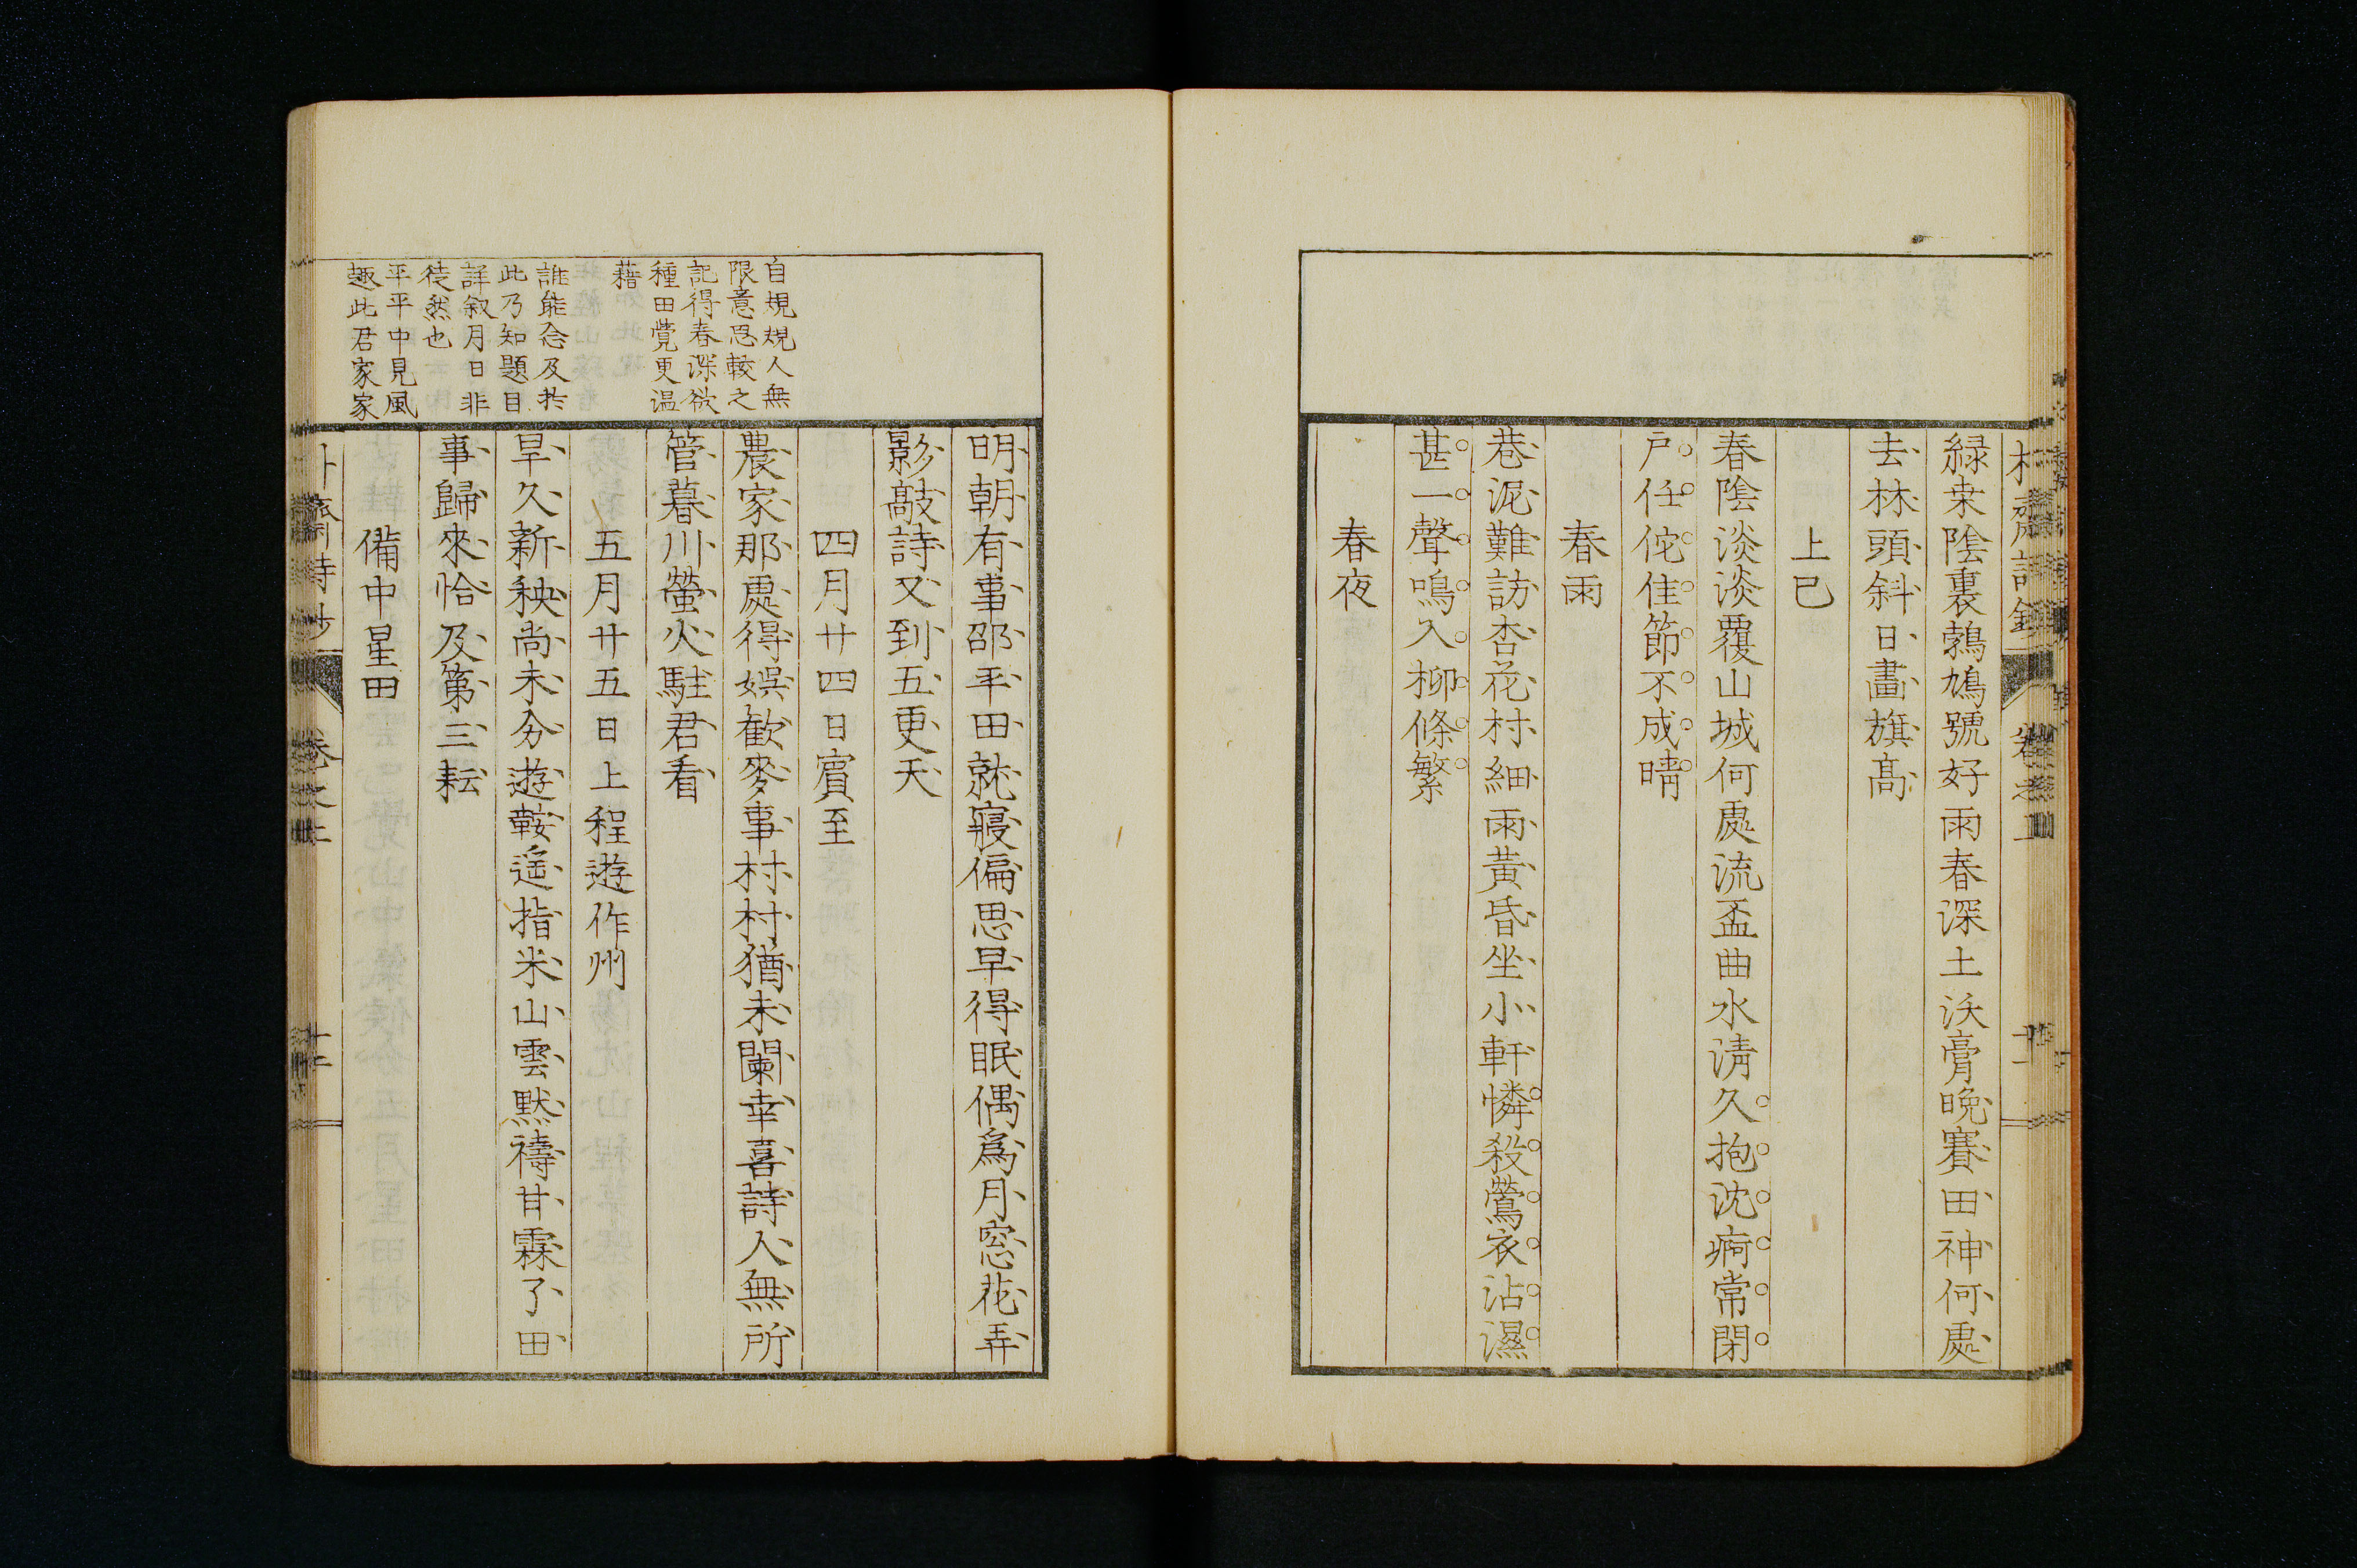 緑桒陰裏鶉鳩號好雨春深土沃膏晩賽田神何處
去林頭斜日畵旗髙
上巳
春陰淡淡覆山城何處流盃曲水淸久抱沈痾常閉
戸任佗佳節不成晴
春雨
巷泥難訪杏花村細雨黃昏坐小軒憐殺鶯衣沾濕
甚一聲鳴入柳條繁
春夜
明朝有事邵平田就寢偏思早得眠偶爲月窓花弄
影敲詩又到五更天
四月廿四日賓至
農家那處得娯歓麥事村村猶未闌幸喜詩人無所
管暮川螢火駐君看
五月廿五日上程遊作州
旱久新秧尚未分遊鞍遥指米山雲黙禱甘霖了田
事歸來恰及第三耘
備中星田
自規規人無
限意思較之
記得春深欲
種田覺更温
藉
誰能念及共
此乃知題目
詳叙月日非
徒然也
平平中見風
趣此君家家
卷之上